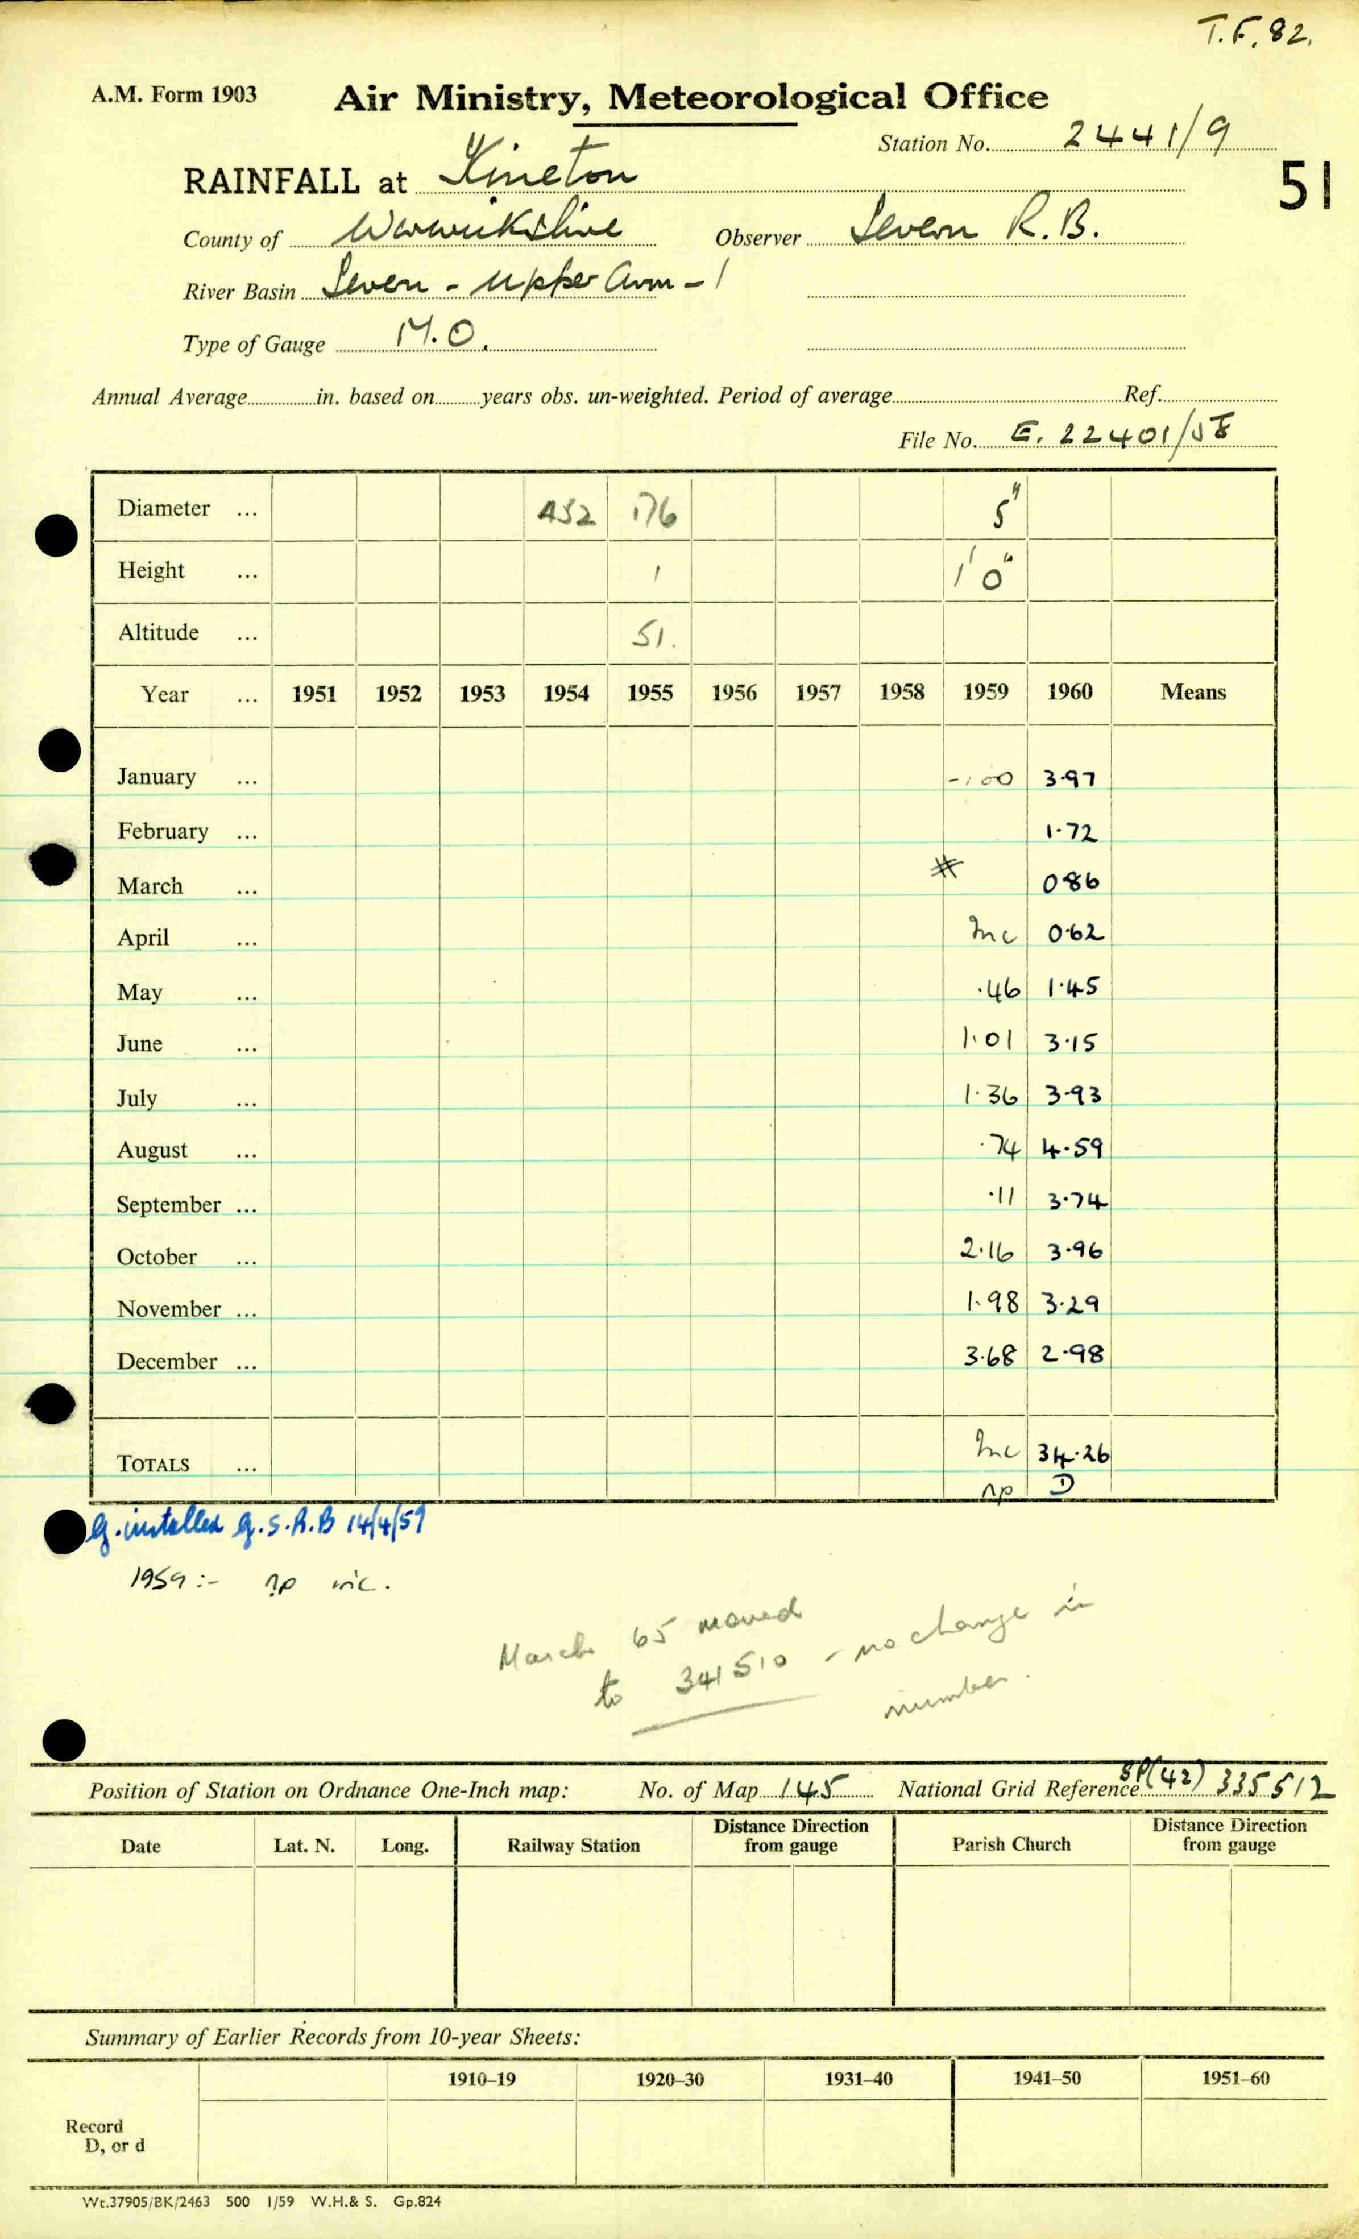 T.F. 82.
A.M. Form 1903 Air Ministry, Meteorological Office
Station No. 2441/9
51
RAINFALL at Kineton
County of Warwickshire Observer Severn R.B.
River Basin Severn - Upper Avon - 1
Type of Gauge M.O.
Annual Average in. based on years obs. un-weighted. Period of average Ref.
File No. E. 22401/58
Diameter ... 452 176 5"
Height ... 1 1' 0"
Altitude ... 51.
Year ... 1951 1952 1953 1954 1955 1956 1957 1958 1959 1960 Means
January ... 3.97
February ... 1.72
March ... 0.86
April ... Inc 0.62
May ... .46 1.45
June ... 1.01 3.15
July ... 1.36 3.93
August ... .74 4.59
September ... .11 3.74
October ... 2.16 3.96
November ... 1.98 3.29
December ... 3.68 2.98
TOTALS ... Inc 34.26
np D
g. installed g.S.R.B 14/4/59
1959 :- np inc.
March 65 moved
to 341510 - no change in
number.
Position of Station on Ordnance One-Inch map: No. of Map 145 National Grid Reference SP(42) 335512
Date Lat. N. Long. Railway Station Distance Direction from gauge Parish Church Distance Direction from gauge
Summary of Earlier Records from 10-year Sheets:
1910–19 1920–30 1931–40 1941–50 1951–60
Record
D, or d
Wt.37905/BK/2463 500 1/59 W.H.& S. Gp.824